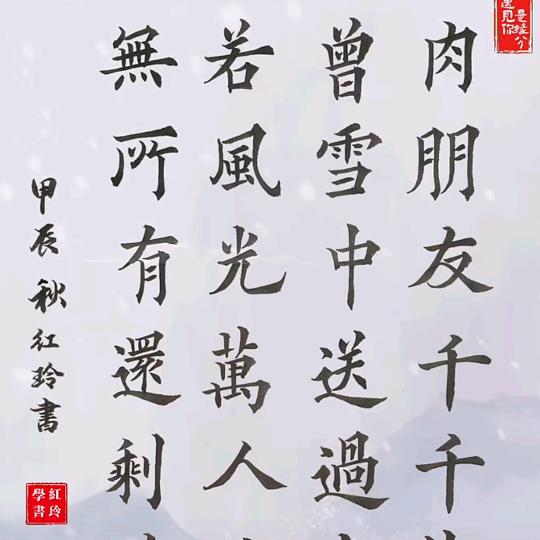 肉朋友千千
曾雪中送過
若風光萬人
無所有還剩
甲辰秋紅玲書
遇見你
是緣分
紅玲
學書